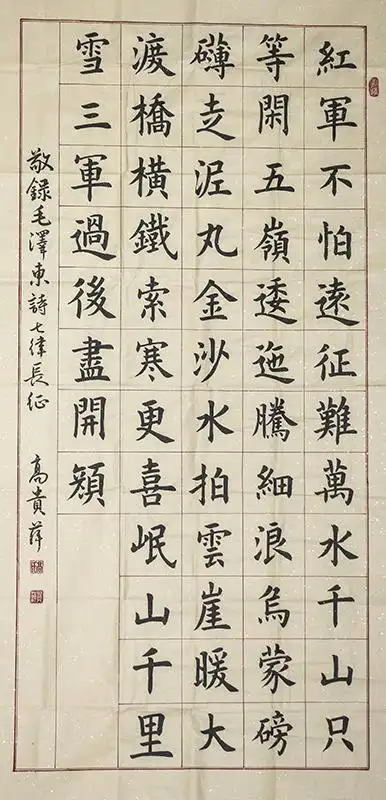 紅軍不怕遠征難萬水千山只
等閑五嶺逶迤騰細浪烏蒙磅
礴走泥丸金沙水拍雲崖暖大
渡橋橫鐵索寒更喜岷山千里
雪三軍過後盡開顏
敬錄毛澤東詩七律長征 高貴